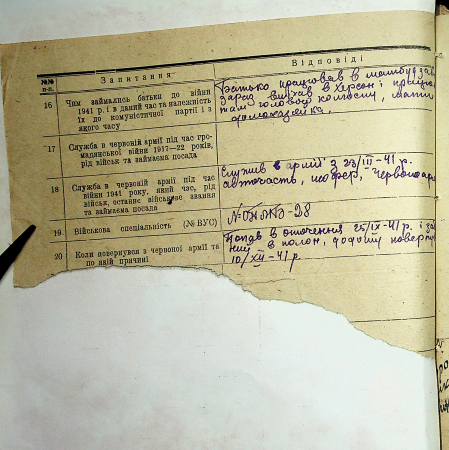 №№ п-п.
Запитання
Відповіді
16
Чим займались батьки до війни
1941 р. і в даний час та належність
їх до комуністичної партії і з
якого часу
Батько працював в
зараз виїхав в Херсон і працює
там головою колгоспу, мати
домохазяйка.
17
Служба в червоній армії під час гро-
мадянської війни 1917—22 років,
рід військ та займаєма посада
18
Служба в червоній армії під час
війни 1941 року, який час, рід
військ, останнє військове звання
та займаєма посада
Служив в армії з 23/III-41 р.
авточасть, шофер, червоноар
19
Військова спеціальність (№ ВУС)
28
20
Коли повернувся з червоної армії та
по якій причині
Попав в оточення 25/IX-41 р. і
в полон, додому
10/XII-41 р